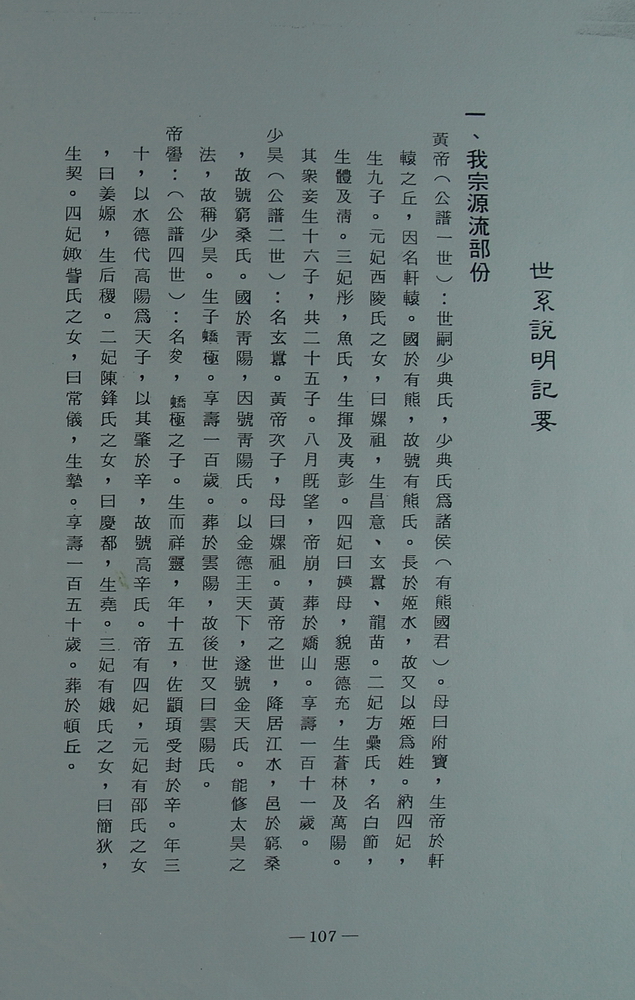 世系說明記要
一、我宗源流部份
黃帝（公譜一世）：世嗣少典氏，少典氏爲諸侯（有熊國君）。母曰附寶，生帝於軒
轅之丘，因名軒轅。國於有熊，故號有熊氏。長於姬水，故又以姬爲姓。納四妃，
生九子。元妃西陵氏之女，曰嫘祖，生昌意、玄囂、龍苗。二妃方纍氏，名白節，
生體及淸。三妃彤，魚氏，生揮及夷彭。四妃曰嫫母，貌惡德充，生蒼林及萬陽。
其衆妾生十六子，共二十五子。八月旣望，帝崩，葬於嶠山。享壽一百十一歲。
少昊（公譜二世）：名玄囂。黃帝次子，母曰嫘祖。黃帝之世，降居江水，邑於窮桑
，故號窮桑氏。國於靑陽，因號靑陽氏。以金德王天下，遂號金天氏。能修太昊之
法，故稱少昊。生子蟜極。享壽一百歲。葬於雲陽，故後世又曰雲陽氏。
帝嚳：（公譜四世）：名夋，蟜極之子。生而祥靈，年十五，佐顓頊受封於辛。年三
十，以水德代高陽爲天子，以其肇於辛，故號高辛氏。帝有四妃，元妃有邰氏之女
，曰姜嫄，生后稷。二妃陳鋒氏之女，曰慶都，生堯。三妃有娥氏之女，曰簡狄，
生契。四妃娵訾氏之女，曰常儀，生摯。享壽一百五十歲。葬於頓丘。
—107—